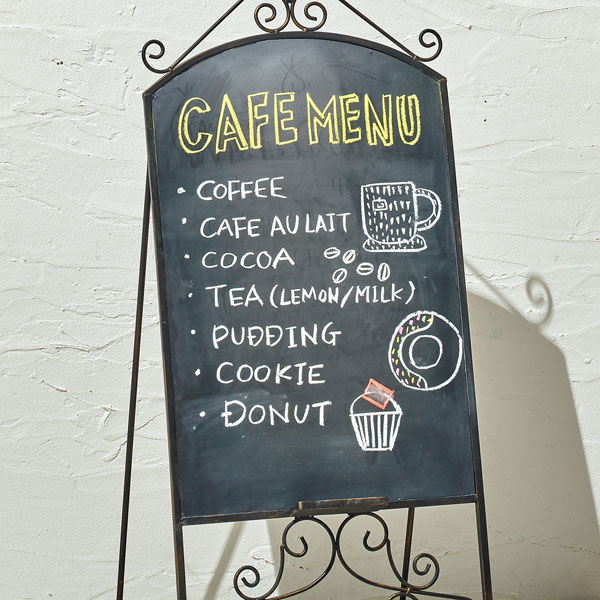 CAFE MENU
• COFFEE
• CAFE AU LAIT
• COCOA
• TEA (LEMON/MILK)
• PUĐĐING
• COOKIE
• ĐONUT